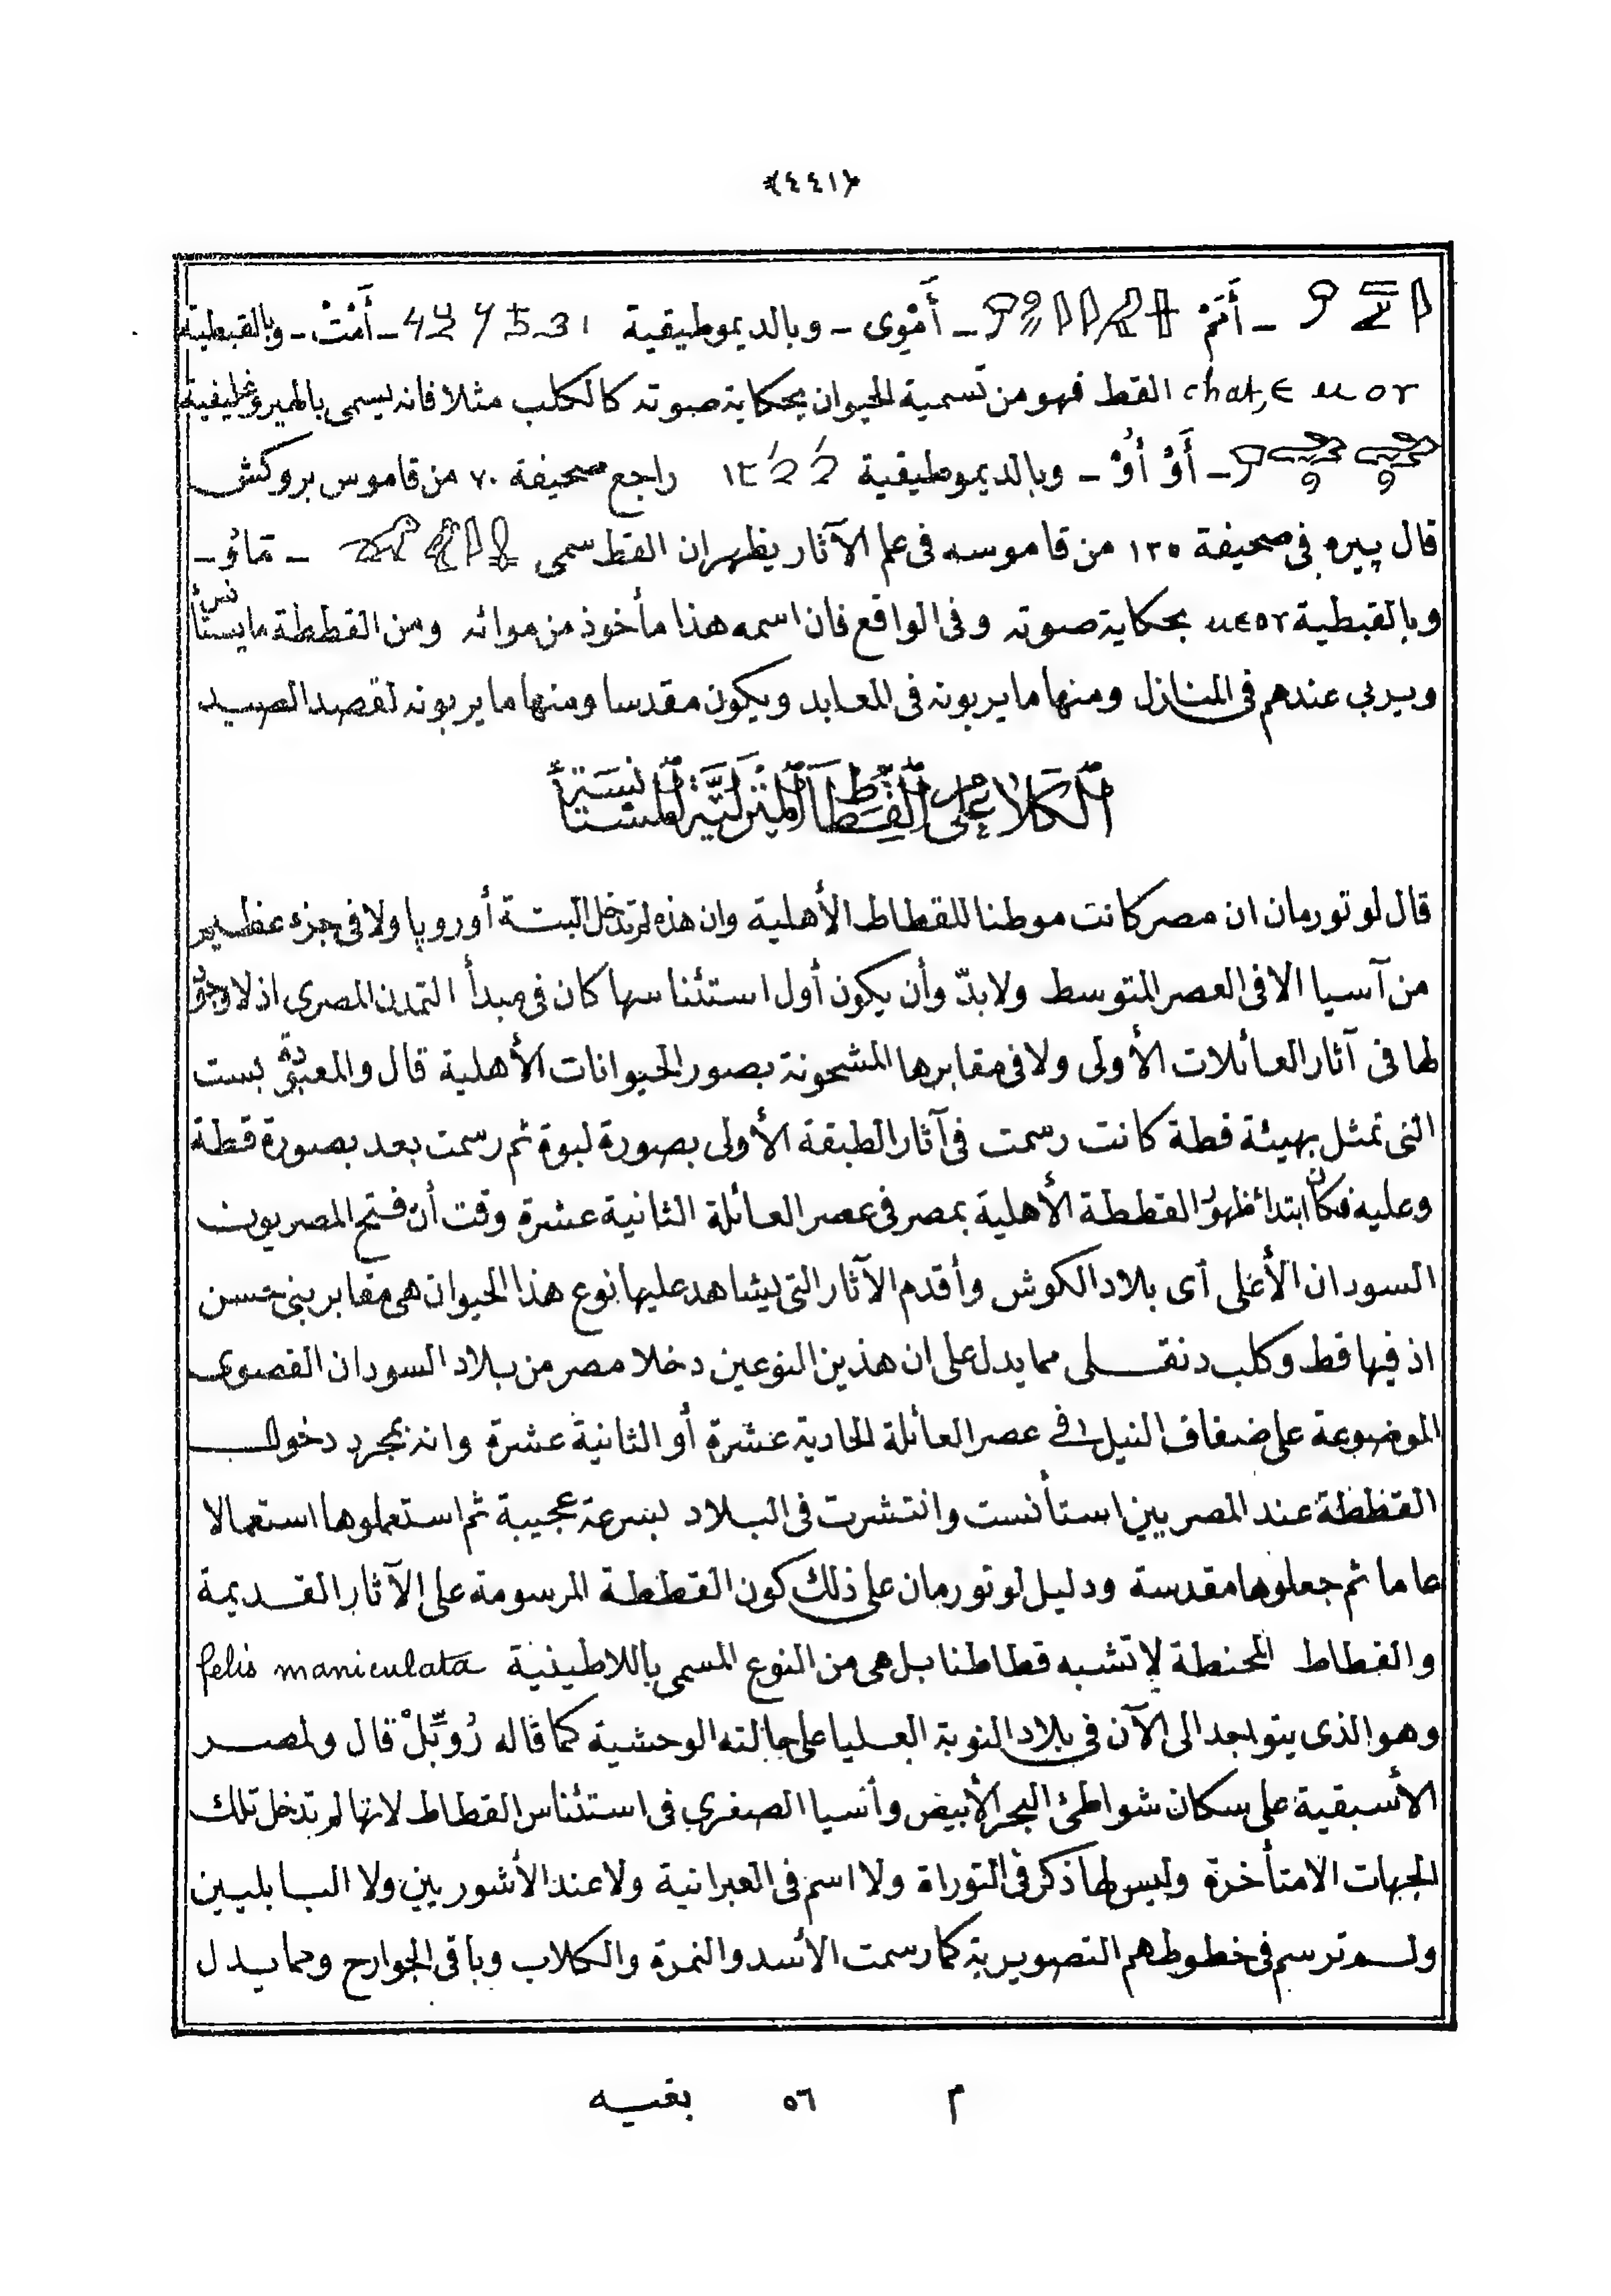 ﴿٤٤١﴾
_ أَتَمْ _ أَمْوِى _ وبالديموطيقية _ أَمْتْ _ وبالقبطية
chat, ⲉⲙⲟⲩ القط فهو من تسمية الحيوان بحكاية صوته كالكلب مثلا فانه يسمى بالهيروغليفية
_ أَوْ أُوْ _ وبالديموطيقية راجع صحيفة ٧٠ من قاموس بروكش
قال پيره فى صحيفة ١٣٥ من قاموسه فى علم الآثار يظهر ان القط سمى _ مَاوُ _
وبالقبطية ⲙⲉⲟⲩ بحكاية صوته وفى الواقع فان اسمه هذا مأخوذ من موائه ومن القططة ما يستأنس
ويربى عندهم فى المنازل ومنها ما يربونه فى المعابد ويكون مقدسا ومنها ما يربونه لقصد الصيد
الكلام على القطط المنزلية المستأنسة
قال لوتورمان ان مصر كانت موطنا للقطاط الأهلية وان هذه لم تدخل البتة أوروپا ولا فى جزء عظيم
من آسيا الا فى العصر المتوسط ولا بدّ وأن يكون أول استئناسها كان فى مبدأ التمدن المصرى اذ لا وجود
لها فى آثار العائلات الأولى ولا فى مقابرها المشحونة بصور الحيوانات الأهلية قال والمعبودة بست
التى تمثل بهيئة قطة كانت رسمت فى آثار الطبقة الأولى بصورة لبوة ثم رسمت بعد بصورة قطة
وعليه فكان ابتدا ظهور القططة الأهلية بمصر فى عصر العائلة الثانية عشرة وقت أن فتح المصريون
السودان الأعلى أى بلاد الكوش وأقدم الآثار التى يشاهد عليها نوع هذا الحيوان هى مقابر بنى حسن
اذ فيها قط وكلب دنقلى مما يدل على ان هذين النوعين دخلا مصر من بلاد السودان القصوى
الموضوعة على ضفاف النيل فى عصر العائلة الحادية عشرة أو الثانية عشرة وانه بمجرد دخول
القططة عند المصريين استأنست وانتشرت فى البلاد بسرعة عجيبة ثم استعملوها استعمالا
عاما ثم جعلوها مقدسة ودليل لوتورمان على ذلك كون القططة المرسومة على الآثار القديمة
والقطاط المحنطة لا تشبه قطاطنا بل هى من النوع المسمى باللاطينية felis maniculata
وهو الذى يتواجد الى الآن فى بلاد النوبة العليا على حالته الوحشية كما قاله رُوپِّلْ قال ولمصر
الأسبقية على سكان شواطئ البحر الأبيض وأسيا الصغرى فى استئناس القطاط لانها لم تدخل تلك
الجهات الا متأخرة وليس لها ذكر فى التوراة ولا اسم فى العبرانية ولا عند الأشوريين ولا البابليين
ولم ترسم فى خطوطهم التصويرية كما رسمت الأسد والنمرة والكلاب وباقى الجوارح ومما يدل
م ٥٦ بغيه